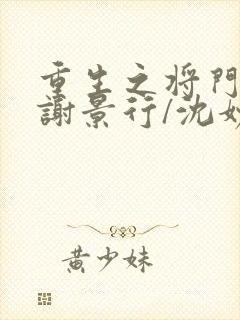 重生之将門
謝景行/沈妙
黄少妹